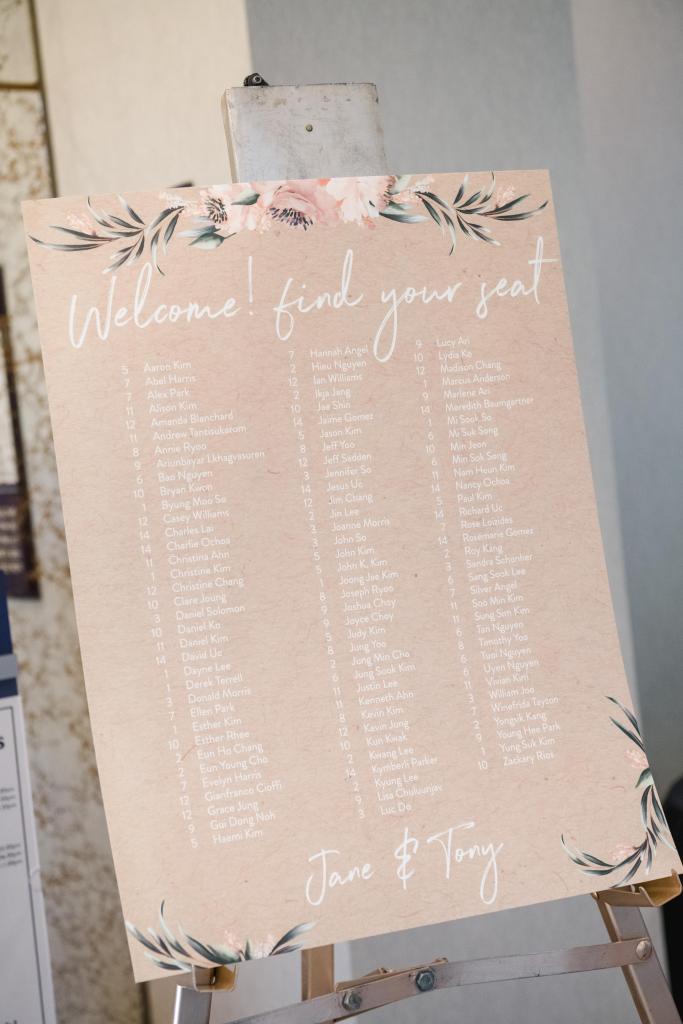 Welcome! find your seat
5 Aaron Kim
7 Abel Harris
7 Alex Park
11 Alison Kim
12 Amanda Blanchard
11 Andrew Tantisukarom
8 Annie Ryoo
9 Ariunbayar Lkhagvasuren
6 Bao Nguyen
10 Bryan Kwon
1 Byung Moo So
12 Casey Williams
14 Charles Lai
14 Charlie Ochoa
11 Christina Ahn
1 Christine Kim
12 Christine Chang
10 Clare Joung
3 Daniel Solomon
10 Daniel Ko
11 Daniel Kim
14 David Uc
1 Dayne Lee
1 Derek Terrell
3 Donald Morris
7 Ellen Park
1 Esther Kim
10 Esther Rhee
2 Eun Ho Chang
2 Eun Young Cho
7 Evelyn Harris
12 Gianfranco Cioffi
12 Grace Jung
9 Gui Dong Noh
5 Haemi Kim
7 Hannah Angel
2 Hieu Nguyen
12 Ian Williams
2 Ikja Jang
10 Jae Shin
14 Jaime Gomez
5 Jason Kim
8 Jeff Yoo
12 Jeff Sadden
3 Jennifer So
14 Jesus Uc
12 Jim Chang
2 Jin Lee
3 Joanne Morris
3 John So
5 John Kim
5 John K. Kim
1 Joong Jae Kim
8 Joseph Ryoo
9 Joshua Choy
9 Joyce Choy
5 Judy Kim
8 Jung Yoo
2 Jung Min Cho
6 Jung Sook Kim
11 Justin Lee
11 Kenneth Ahn
8 Kevin Kim
12 Kevin Jung
10 Kun Kwak
2 Kwang Lee
14 Kymberli Parker
2 Kyung Lee
9 Lisa Chuluunjav
3 Luc Do
9 Lucy Ari
10 Lydia Ko
12 Madison Chang
1 Marcus Anderson
9 Marlene Ari
14 Meredith Baumgartner
1 Mi Sook So
6 Mi Suk Song
10 Min Jeon
6 Min Sok Song
11 Nam Heun Kim
14 Nancy Ochoa
5 Paul Kim
14 Richard Uc
7 Rose Loizides
14 Rosemarie Gomez
2 Roy Kang
3 Sandra Schonher
6 Sang Sook Lee
7 Silver Angel
11 Soo Min Kim
11 Sung Sim Kim
6 Tan Nguyen
8 Timothy Yoo
6 Tuoi Nguyen
6 Uyen Nguyen
11 Vivian Kim
3 William Joo
7 Winefrida Tayzon
2 Yongsik Kang
9 Young Hee Park
1 Yung Suk Kim
10 Zackary Rios
Jane & Tony